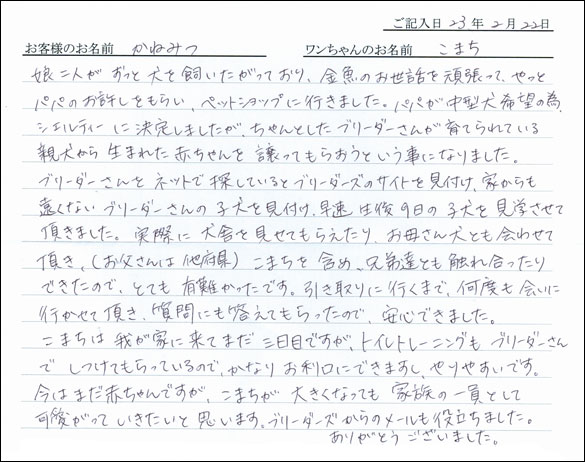 ご記入日 23年2月22日
お客様のお名前 かねみつ ワンちゃんのお名前 こまち
娘二人がずっと犬を飼いたがっており、金魚のお世話を頑張って、やっと
パパのお許しをもらい、ペットショップに行きました。パパが中型犬希望の為、
シェルティーに決定しましたが、ちゃんとしたブリーダーさんが育てられている
親犬から生まれた赤ちゃんを譲ってもらおうという事になりました。
ブリーダーさんをネットで探しているとブリーダーズのサイトを見付け、家からも
遠くないブリーダーさんの子犬を見付け、早速生後9日の子犬を見学させて
頂きました。実際に犬舎を見せてもらえたり、お母さん犬とも会わせて
頂き、(お父さんは他府県)こまちを含め、兄弟達とも触れ合ったり
できたので、とても有難かったです。引き取りに行くまで、何度も会いに
行かせて頂き、質問にも答えてもらったので、安心できました。
こまちは我が家に来てまだ三日目ですが、トイレトレーニングもブリーダーさん
でしつけてもらっているので、かなりお利口にできますし、やりやすいです。
今はまだ赤ちゃんですが、こまちが大きくなっても家族の一員として
可愛がっていきたいと思います。ブリーダーズからのメールも役立ちました。
ありがとうございました。